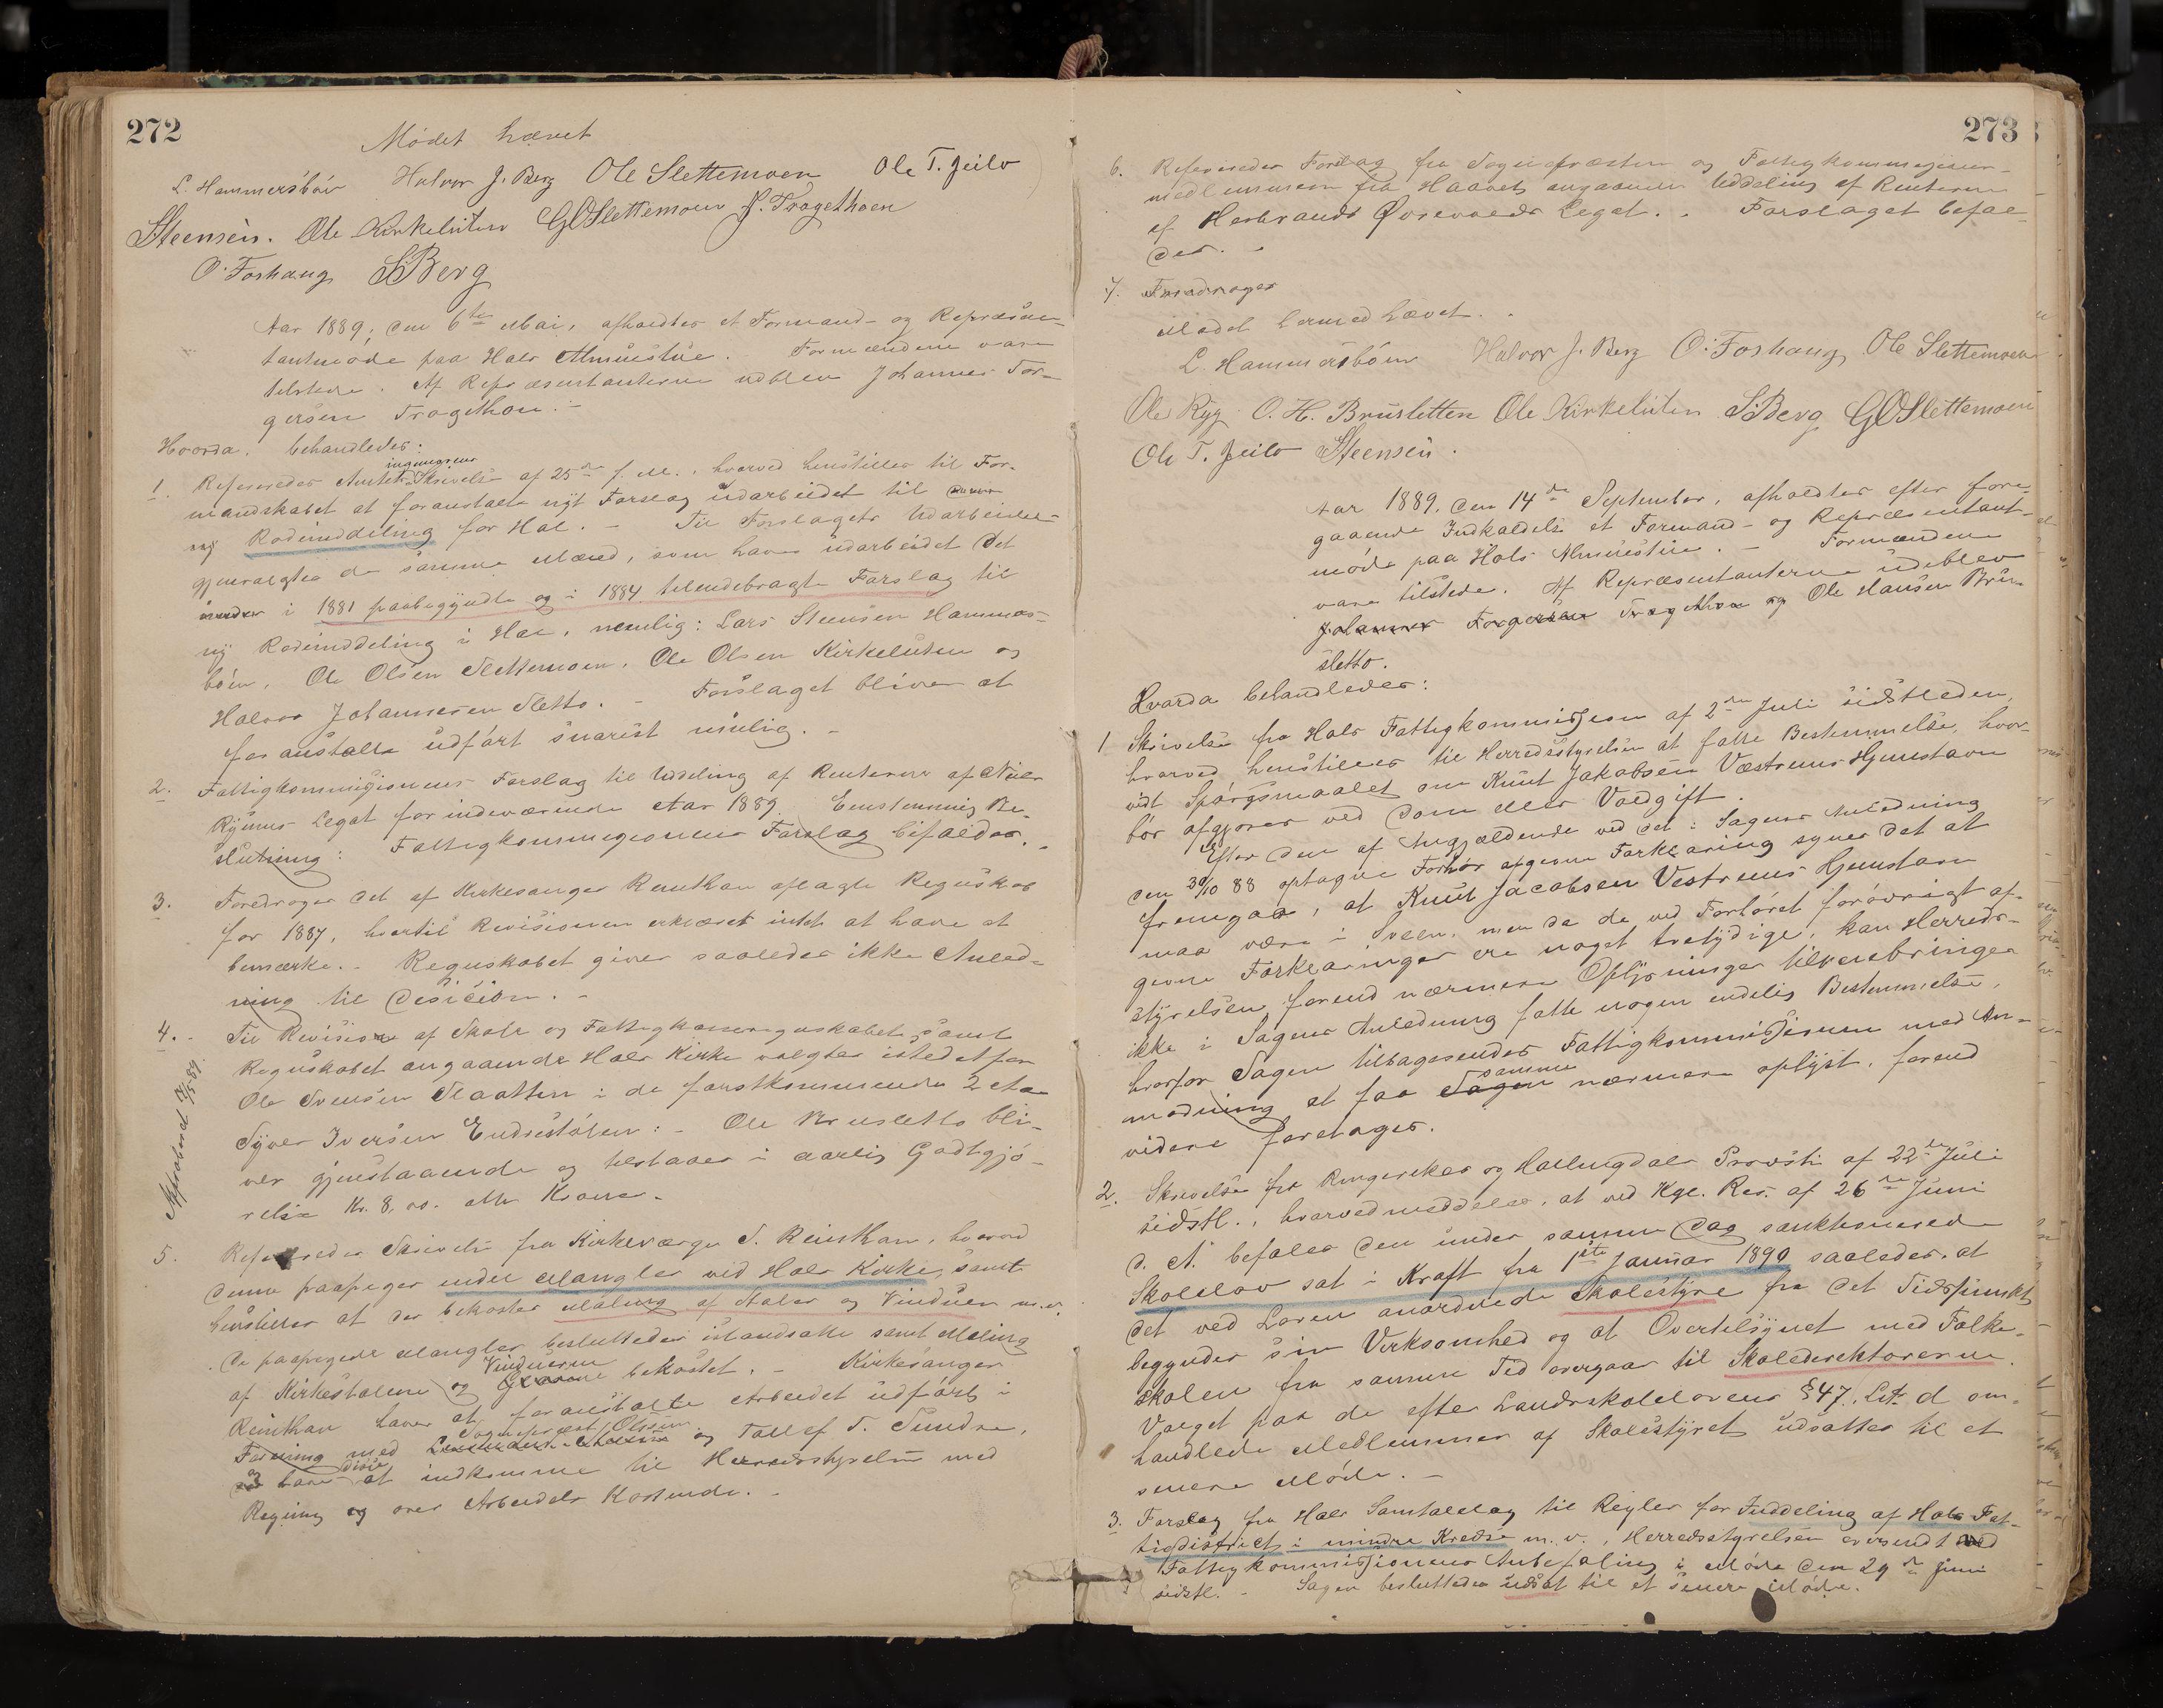 272
Mødet hævet
L. Hammersbøen Halvor J. Berg Ole Slettemoen Ole T. Jeilo
Steensen. Ole Kirkeluten GOSlettemoen J. Trøgethoen
O. Forhaug SBerg
Aar 1889, den 6te Mai, afholdtes et Formand- og Repræsæn-
tantmøde paa Hols Almuestue. Formændene vare
tilstede. Af Repræsentanterne udblev Johannes Tor-
gersen Trøgethon.
Hvorda behandledes:
1. Refereredes Amtets Skrivelse af 25de f. M., hvorved henstilles til For-
mandskabet at foranstalte nyt Forslag udarbeidet til
ny Rodeinddeling for Hol. - Til Forslagets Udarbeidelse
gjenvalgtes de samme Mænd, som have udarbeidet det
i 1881 paabegyndte og i 1884 tilendebragte Forslag til
ny Rodeinddeling i Hol, nemlig: Lars Steensen Hammers-
bøen, Ole Olsen Slettemoen, Ole Olsen Kirkeluten og
Halvor Johannesen Sletto. - Forslaget bliver at
foranstalte udført snarest mulig. -
2. Fattigkommissionens Forslag til Uddeling af Renterne af Niels
Rynnes Legat for indeværende Aar 1889. Eenstemmig Be-
slutning: Fattigkommissionens Forslag bifaldes. -
3. Foredroges det af Kirkesanger Reinthon aflagte Regnskab
for 1887, hvortil Revisionen erklæret intet at have at
bemærke. - Regnskabet giver saaledes ikke Anled-
ning til Desision. -
4. Til Revision af Skole og Fattigkasseregnskabet samt
Regnskabet angaaende Hols Kirke valgtes istedetfor
Ole Svensen Slaatten i de førstkommende 2 Aar
Syver Iversen Endrestølen: - Ole Brusletto bli-
ver gjenstaaende og tilstaaes i aarlig Godtgjø-
relse Kr. 8,00. otte Kroner.
5. Refereredes Skrivelse fra Kirkeværge S. Reinthon, hvorved
denne paapeger endel Mangler ved Hols Kirke, samt
henstiller at der bekostes Maling af Stoler og Vinduer m.v.
De paapegede Mangler besluttedes istandsatte samt Maling
af Kirkestolene og Vinduerne bekostet. - Kirkesanger
Reinthon haver at foranstalte Arbeidet udført i
Forening med Sogneprest Olsen og Tollef T. Sundre,
have disse at indkomme til Herredsstyrelsen med
Regning og over Arbeidets Kostende. -
273
6. Refereredes Forslag fra Sognepræsten og Fattigkommissions-
medlemmerne fra Hovet angaaende Uddeling af Renterne
af Herbrands Øvrevolds Legat. - Forslaget bifal-
des. -
7. Foredroges
Mødet hermed hævet. -
L. Hammersbøen Halvor J. Berg O. Forhaug Ole Slettemoen
Ole Ryg O. H. Brusletten Ole Kirkeluten SBerg GOSlettemoen
Ole T. Jeilo Steensen.
Aar 1889, den 14de September, afholdtes efter fore-
gaaende Indkaldelse et Formand- og Repræsentant-
møde paa Hols Almuestue. - Formændene
vare tilstede. Af Repræsentanterne udeblev
Johannes Torgersen Trøgethon og Ole Hansen Bru-
sletto.
Hvorda behandledes:
1 Skrivelse fra Hols Fattigkommission af 2den Juli sidstleden,
hvorved henstilles til Herredsstyrelsen at fatte Bestemmelse, hvor-
vidt Spørgsmaalet om Knut Jakobsen Væstrenes Hjemstavn
bør afgjøres ved Dom eller Voldgift.
Efter den af Angjældende ved det i Sagens Anledning
den 30/10 88 optagne Forhør afgivne Forklaring synes det at
fremgaa, at Knut Jacobsen Vestrenes Hjemstavn
maa være i Sveen, men da de ved Forhøret forøvrigt af-
givne Forklaringer ere noget tvetydige, kan Herreds-
styrelsen, forend nærmere Oplysninger tilveiebringes
ikke i Sagens Anledning fatte nogen endelig Bestemmelse,
hvorfor Sagen tilbagesendes Fattigkommissionen med An-
modning at faa samme nærmere oplyst, forend
videre foretages.
2. Skrivelse fra Ringerikes og Hallingdals Provsti af 22de Juli
sidstl., hvorved meddeles, at ved Kgl. Res. af 26de Juni
d. A. befales den under samme Dag sanktionerede
Skolelov sat i Kraft fra 1ste Januar 1890 saaledes, at
det ved Loven anordnede Skolestyre fra det Tidspunkt
begynder sin Virksomhed og at Overtilsynet med Folke-
skolen fra samme Tid overgaar til Skoledirektørerne.
Valget paa de efter Landsskolelovens §47, Litr. d om-
handlede Medlemmer af Skolestyret udsattes til et
senere Møde. -
3. Forslag fra Hols Samtalelag til Regler for Inddeling af Hols Fat-
tigdistrict i mindre Kredse m. v., Herredsstyrelsen oversendt med
Fattigkommissionens Anbefaling i Møde den 29de Juni
sidstl. - Sagen besluttedes udsat til et senere Møde.